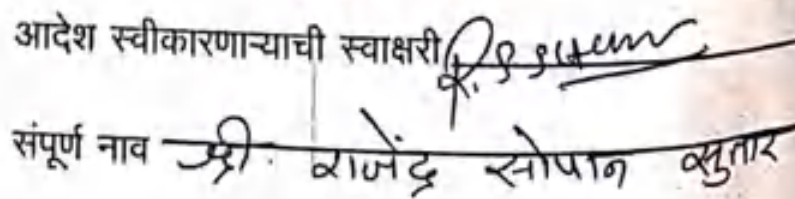 आदेश स्वीकारणाऱ्याची स्वाक्षरी
संपूर्ण नाव श्री. राजेंद्र सोपान सुतार